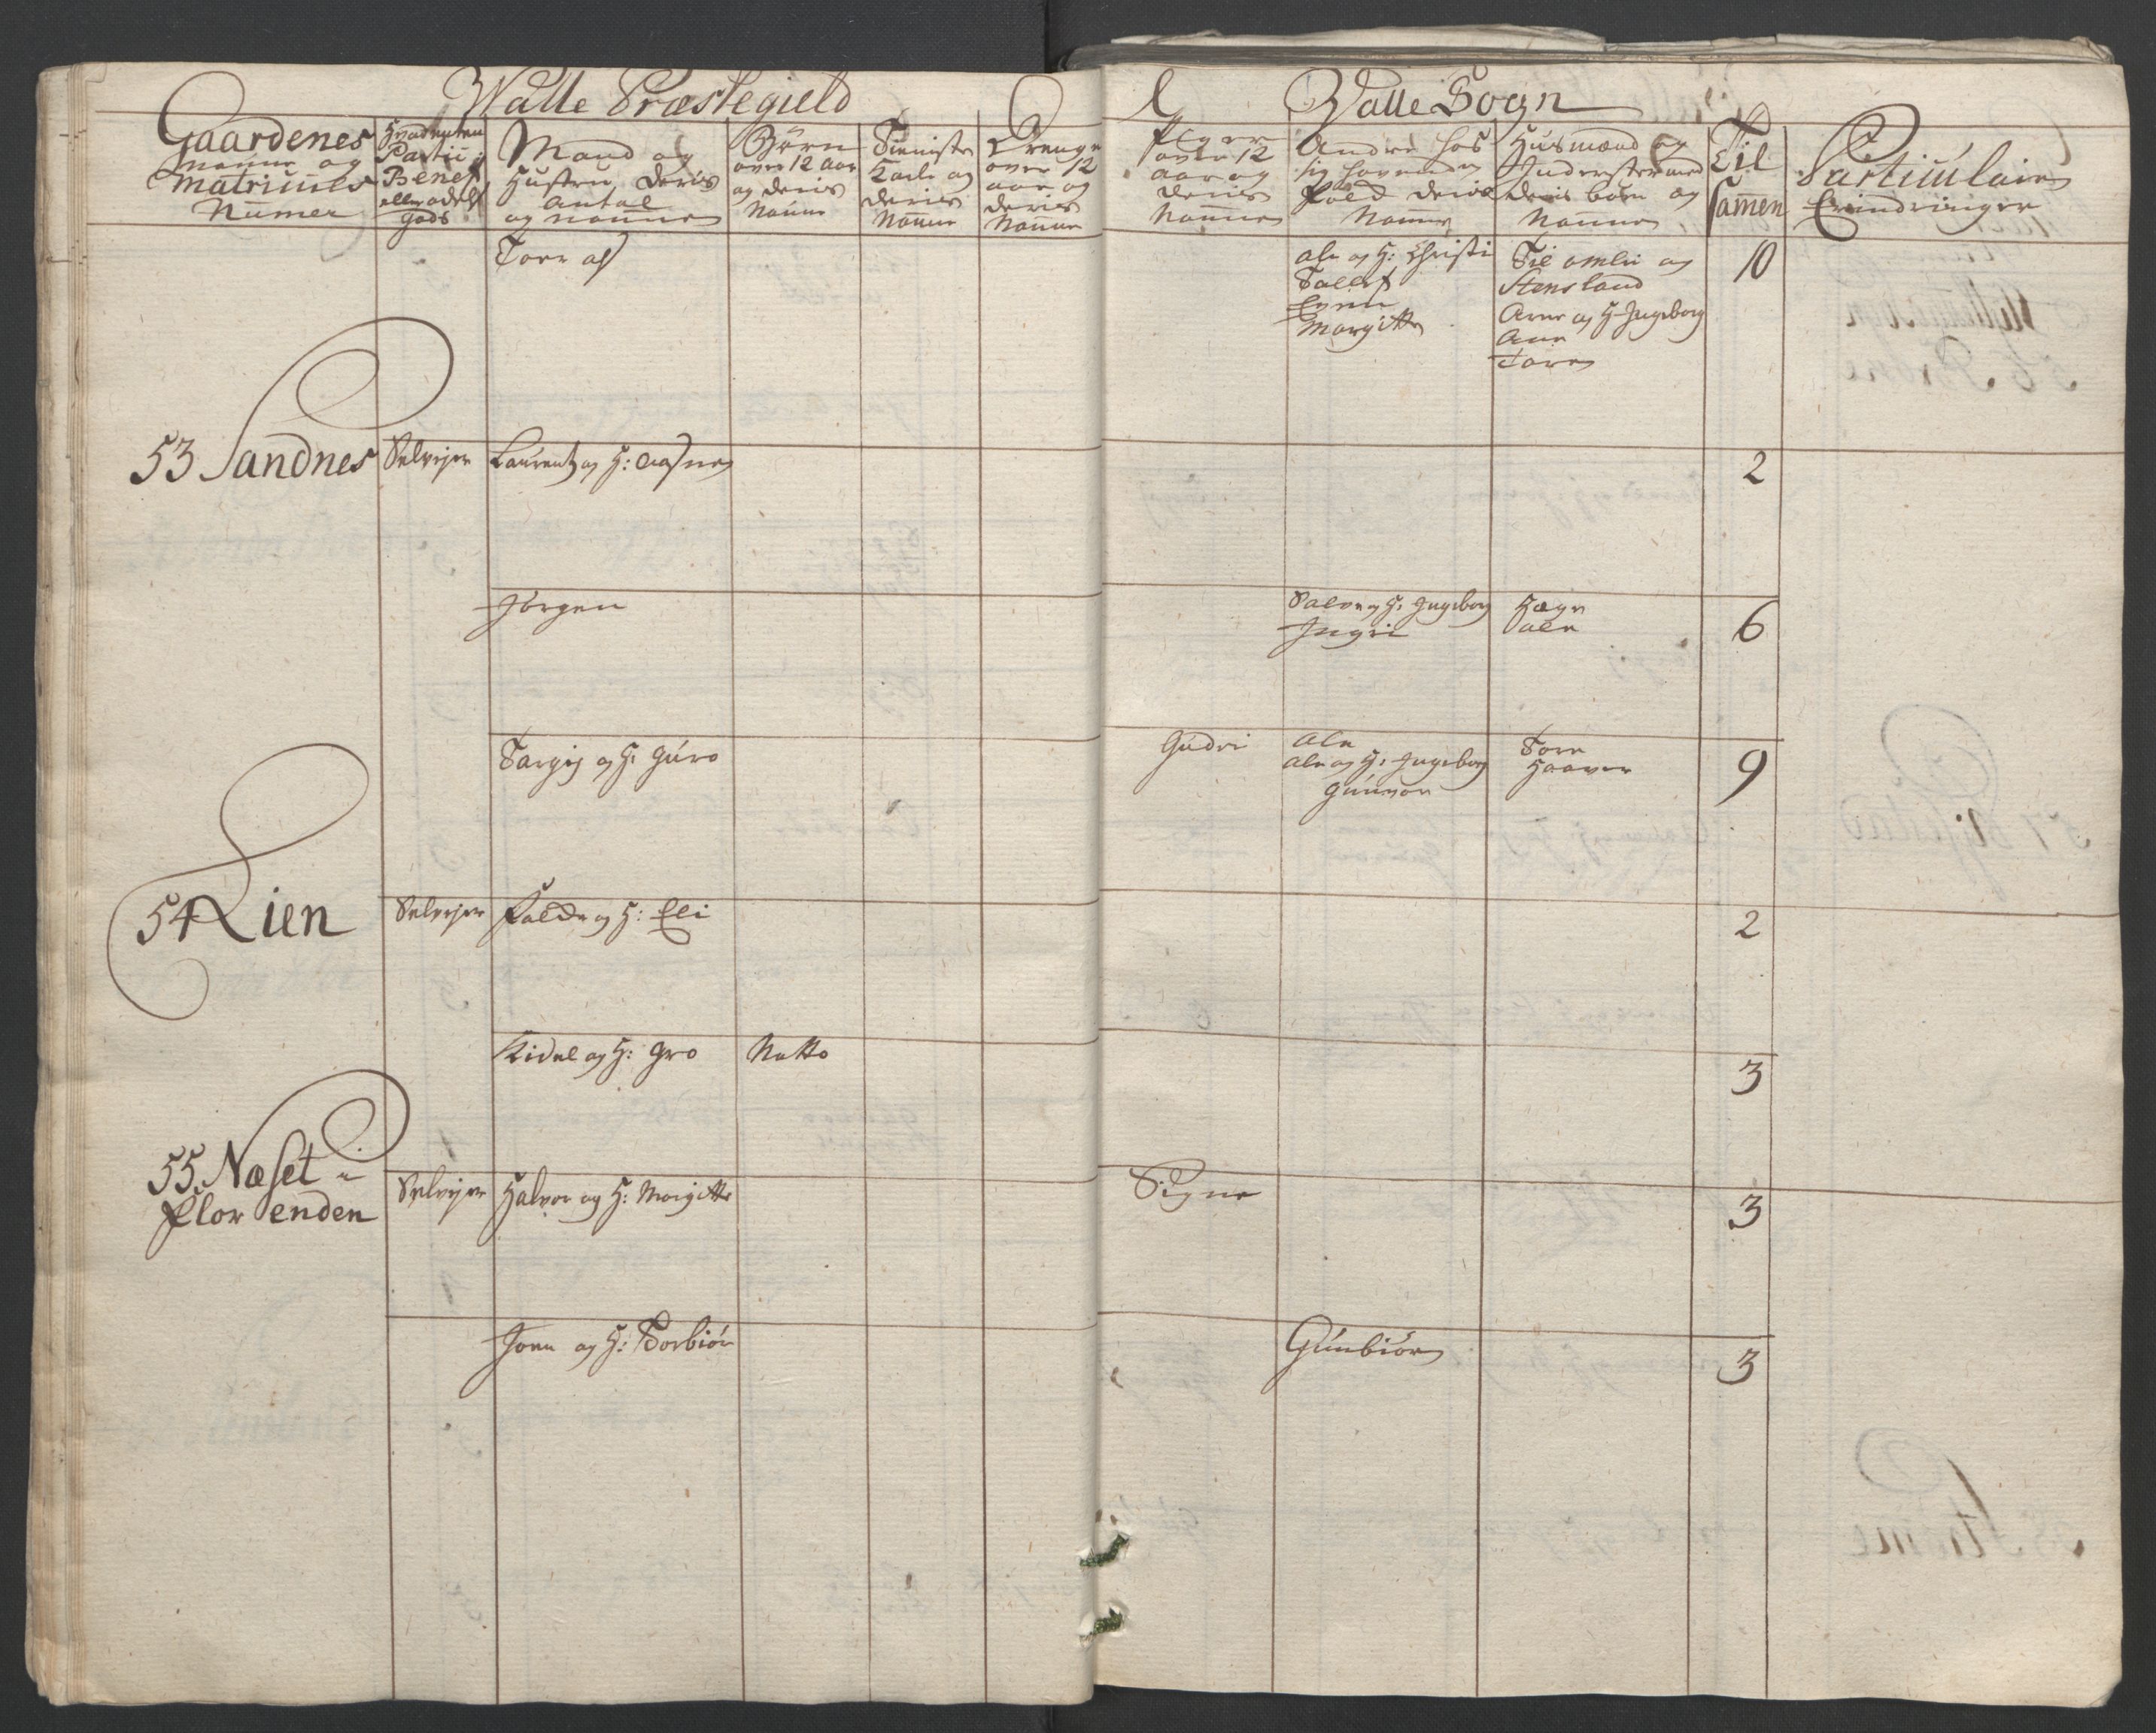 Walle Præstegield
Gaardenes
Nafne og
Matriculs
Numer
Partic:
Benef
eller odels
gods
Mand og
Hustru, deris
Antal
og nafne
Börn
over 12 aar
og deris
Nafne
Tieniste
Karle og
deris
Nafne
Drenge
over 12
aar og
deris
Nafne
Piger
over 12
aar og
deris
Nafne
Valle Sogn
Andre hos
sig havende
Folk deris
Nafne
Husmænd og
Inderster med
deris börn og
Nafne
Til
Samen
Particulaire
Erindringer
Tore
Ole og H: Christi
Tallef
Even
Margitte
Til omli og
Stensland
Arne og H: Ingeborg
Ane
Tore
10
53 Sandnes
Selvejer
Laurents og H: Aasne
2
Jörgen
Salve og H: Ingeborg
Ingri
Hæge
Ole
6
Targij og H: Guro
Gudri
Ole
Ole og H: Ingeborg
Gunvor
Tore
Haaver
9
54 Lien
Selvejer
Folde og H: Eli
2
Kidel og H: Gro
Natto
3
55 Næset i
Flor enden
Selvejer
Halvor og H: Margitte
Signe
3
Jonn og H: Torbiör
Gunbiör
3